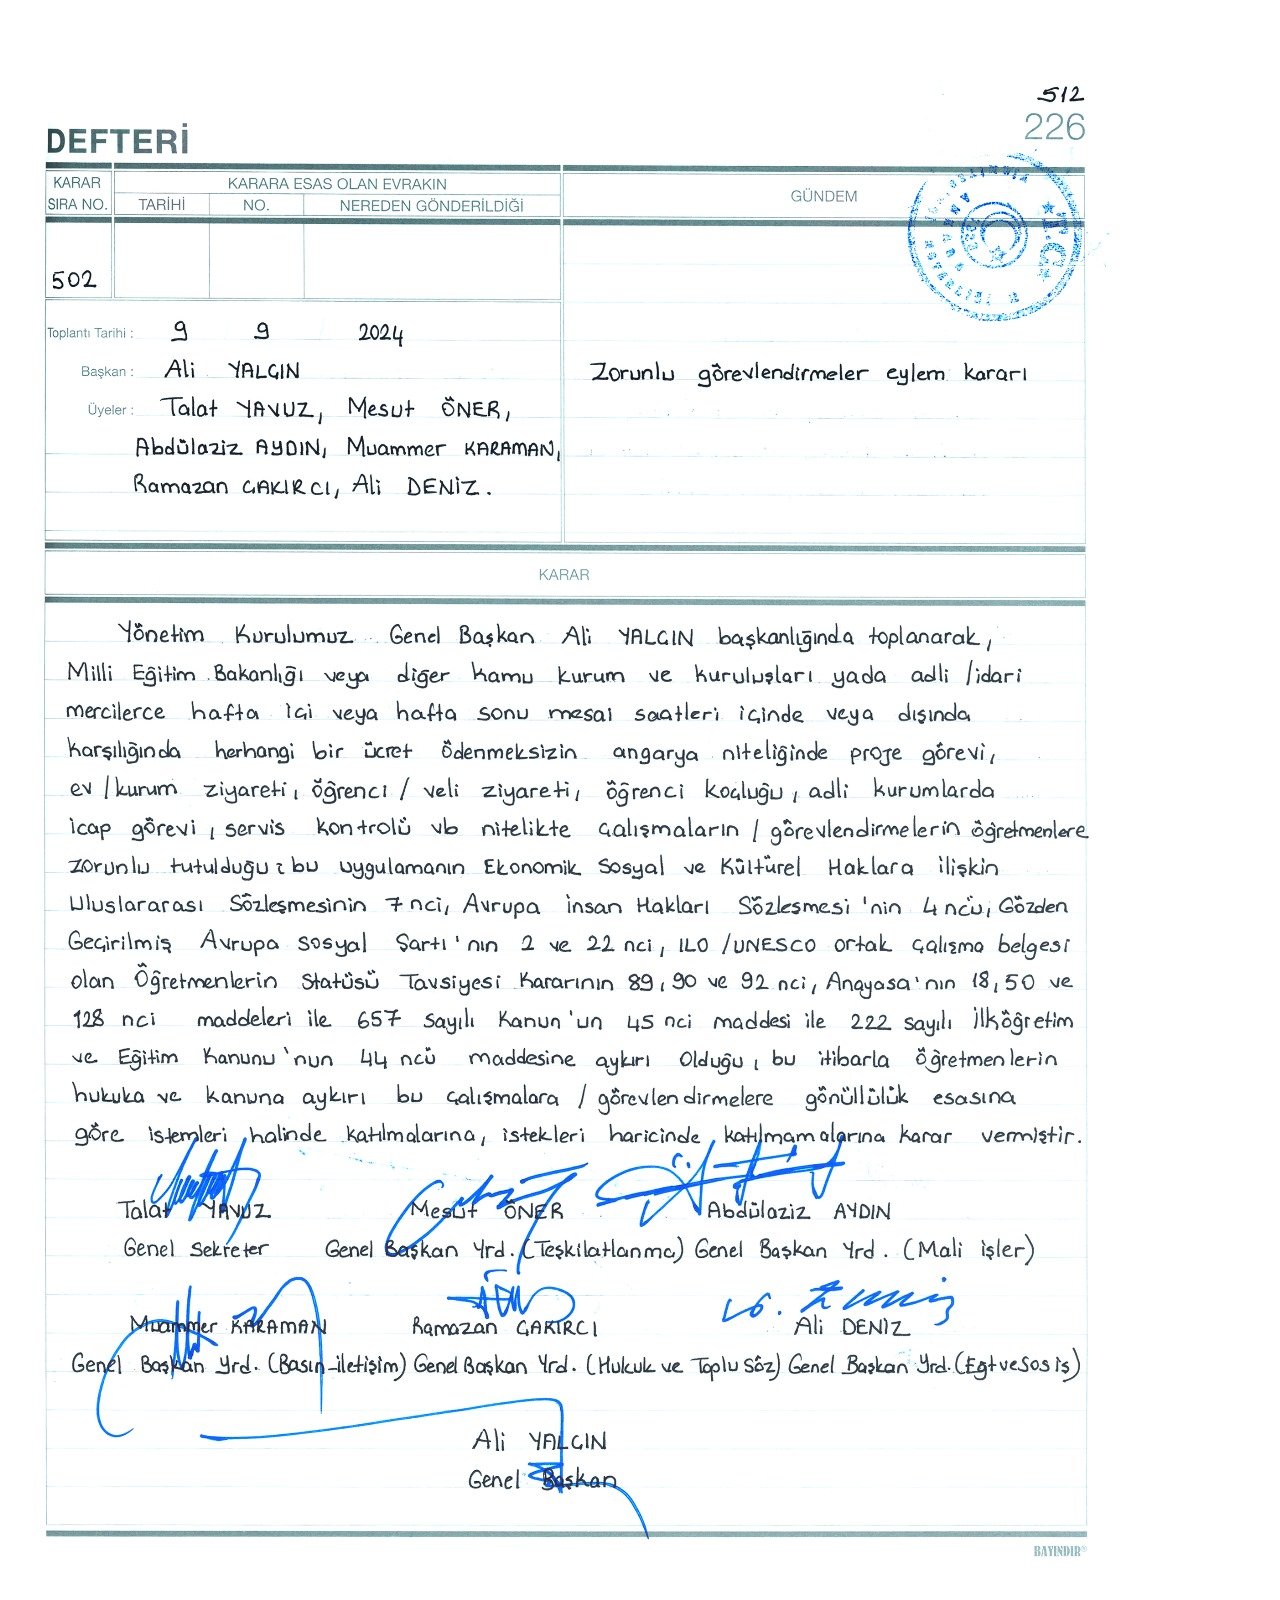 512
226
DEFTERİ
KARAR SIRA NO.
KARARA ESAS OLAN EVRAKIN
TARİHİ NO. NEREDEN GÖNDERİLDİĞİ
GÜNDEM
T.C.
502
Toplantı Tarihi : 9 9 2024
Başkan : Ali YALÇIN
Üyeler : Talat YAVUZ, Mesut ÖNER,
Abdülaziz AYDIN, Muammer KARAMAN,
Ramazan ÇAKIRCI, Ali DENİZ.
Zorunlu görevlendirmeler eylem kararı
KARAR
Yönetim Kurulumuz Genel Başkan Ali YALÇIN başkanlığında toplanarak,
Milli Eğitim Bakanlığı veya diğer kamu kurum ve kuruluşları yada adli /idari
mercilerce hafta içi veya hafta sonu mesai saatleri içinde veya dışında
karşılığında herhangi bir ücret ödenmeksizin angarya niteliğinde proje görevi,
ev /kurum ziyareti, öğrenci / veli ziyareti, öğrenci koçluğu, adli kurumlarda
icap görevi, servis kontrolü vb nitelikte çalışmaların / görevlendirmelerin öğretmenlere
zorunlu tutulduğu; bu uygulamanın Ekonomik Sosyal ve Kültürel Haklara İlişkin
Uluslararası Sözleşmesinin 7 nci, Avrupa İnsan Hakları Sözleşmesi 'nin 4 ncü, Gözden
Geçirilmiş Avrupa Sosyal Şartı'nın 2 ve 22 nci, ILO /UNESCO ortak çalışma belgesi
olan Öğretmenlerin Statüsü Tavsiyesi Kararının 89, 90 ve 92 nci, Anayasa'nın 18, 50 ve
128 nci maddeleri ile 657 sayılı Kanun'un 45 nci maddesi ile 222 sayılı İlköğretim
ve Eğitim Kanunu'nun 44 ncü maddesine aykırı olduğu, bu itibarla öğretmenlerin
hukuka ve kanuna aykırı bu çalışmalara / görevlendirmelere gönüllülük esasına
göre istemleri halinde katılmalarına, istekleri haricinde katılmamalarına karar vermiştir.
Talat YAVUZ Mesut ÖNER Abdülaziz AYDIN
Genel Sekreter Genel Başkan Yrd. (Teşkilatlanma) Genel Başkan Yrd. (Mali işler)
Muammer KARAMAN Ramazan ÇAKIRCI Ali DENİZ
Genel Başkan Yrd. (Basın-iletişim) Genel Başkan Yrd. (Hukuk ve Toplu Söz) Genel Başkan Yrd. (Eğt ve Sos iş)
Ali YALÇIN
Genel Başkan
BAYINDIR